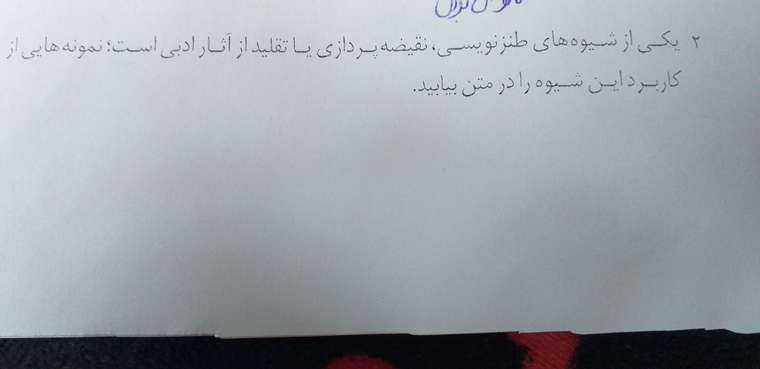 ۲ یکی از شیوه‌های طنزنویسی، نقیضه‌پردازی یا تقلید از آثار ادبی است؛ نمونه‌هایی از
کاربرد این شیوه را در متن بیابید.